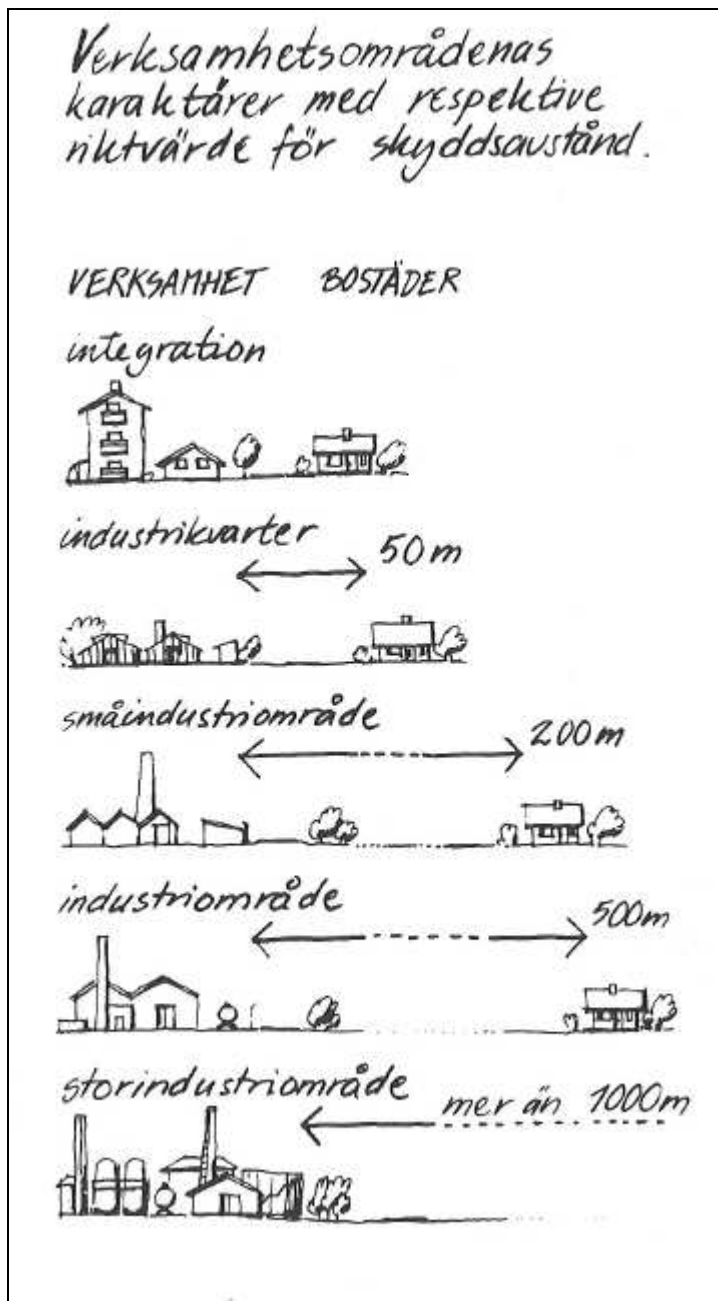 Verksamhetsområdenas
karaktärer med respektive
riktvärde för skyddsavstånd.
VERKSAMHET BOSTÄDER
integration
industrikvarter 50 m
småindustriområde 200 m
industriområde 500 m
storindustriområde mer än 1000 m